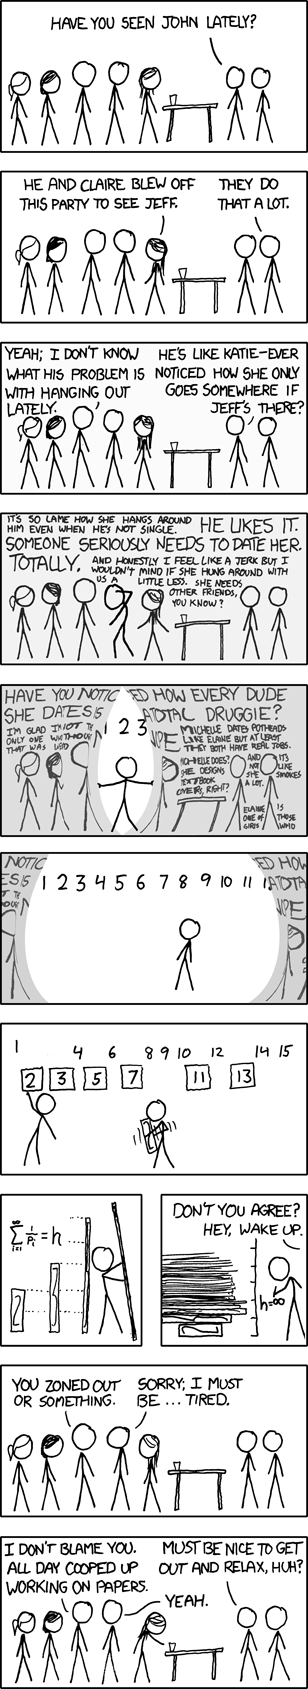 HAVE YOU SEEN JOHN LATELY?
HE AND CLAIRE BLEW OFF
THIS PARTY TO SEE JEFF.
THEY DO
THAT A LOT.
YEAH; I DON'T KNOW
WHAT HIS PROBLEM IS
WITH HANGING OUT
LATELY.
HE'S LIKE KATIE-EVER
NOTICED HOW SHE ONLY
GOES SOMEWHERE IF
JEFF'S THERE?
IT'S SO LAME HOW SHE HANGS AROUND
HIM EVEN WHEN HE'S NOT SINGLE.
HE LIKES IT.
SOMEONE SERIOUSLY NEEDS TO DATE HER.
TOTALLY.
AND HONESTLY I FEEL LIKE A JERK BUT I
WOULDN'T MIND IF SHE HUNG AROUND WITH
US A LITTLE LESS. SHE NEEDS
OTHER FRIENDS,
YOU KNOW?
HAVE YOU NOTIC ED HOW EVERY DUDE
SHE DATES IS A TOTAL DRUGGIE?
I'M GLAD
ONLY ONE
THAT WAS
1 2 3
MICHELLE DATES POTHEADS
LIKE ELAINE BUT AT LEAST
THEY BOTH HAVE REAL JOBS.
MICHELLE DOES?
SHE DESIGNS
TEXTBOOK
COVERS, RIGHT?
AND
NOT
SHE
A LOT.
IT'S
LIKE
SMOKES
ELAINE IS
ONE OF THOSE
GIRLS WHO
NOTIC
ES IS
ED HOW
1 2 3 4 5 6 7 8 9 10 11 1
1 4 6 8 9 10 12 14 15
2 3 5 7 11 13
∞
∑ 1/Pᵢ = h
i=1
2
3
DON'T YOU AGREE?
HEY, WAKE UP.
h=∞
YOU ZONED OUT
OR SOMETHING.
SORRY; I MUST
BE ... TIRED.
I DON'T BLAME YOU.
ALL DAY COOPED UP
WORKING ON PAPERS.
YEAH.
MUST BE NICE TO GET
OUT AND RELAX, HUH?